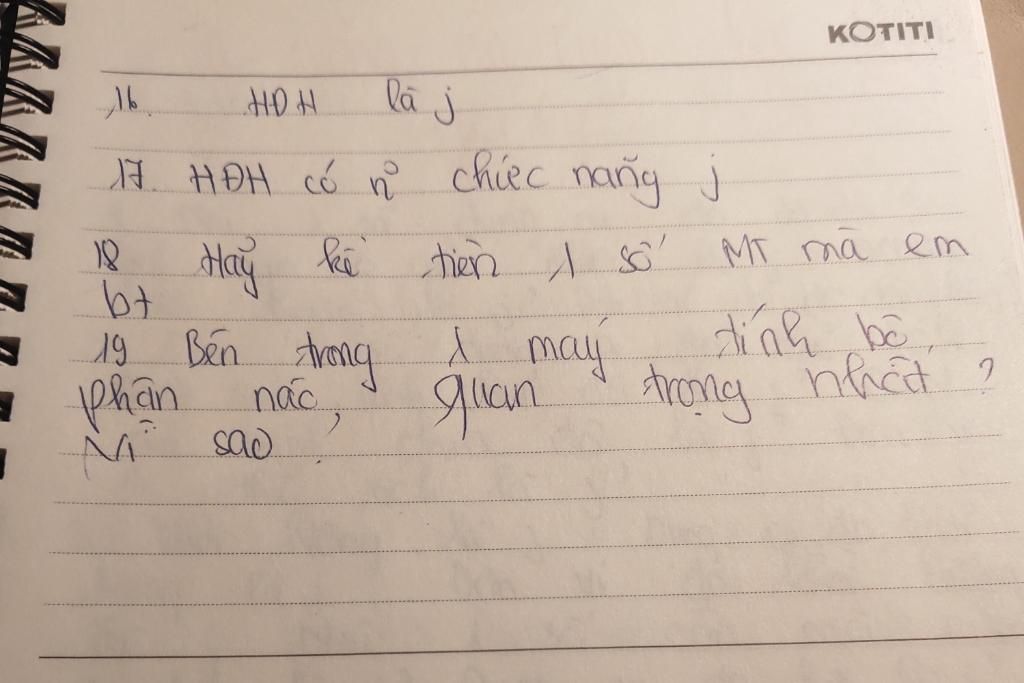 KOTITI
16. HĐH là j
17. HĐH có n° chiéc nang j
18 Hãy kể tiên 1 số MT mà em
bt
19 Bên trong 1 máy tính bộ
phận nào, quan trọng nhất ?
Vì sao